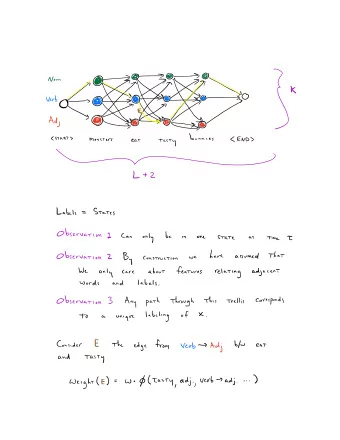 Noun
Verb
Adj
K
<START> monsters eat tasty bunnies <END>
L + 2
Labels = States
Observation 1 Can only be in one state at time t
Observation 2 By construction we have assumed that
we only care about features relating adjacent
words and labels.
Observation 3 Any path through this trellis corresponds
to a unique labeling of x.
Consider E the edge from verb → Adj b/w eat
and tasty
Weight(E) = w · ϕ(tasty, adj., verb → adj. ...)